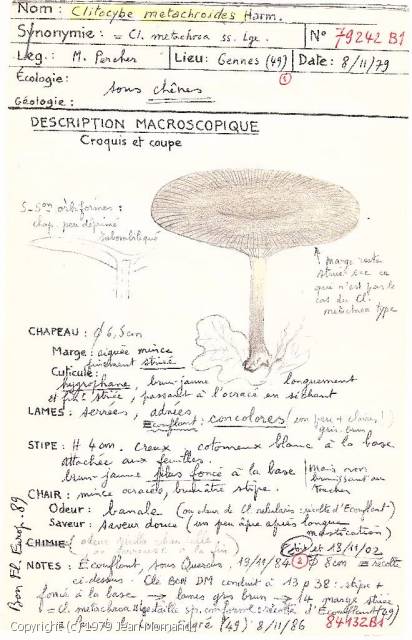 Nom : Clitocybe metachroides Harm.
Synonymie : = Cl. metachroa ss. Lge.
N° 79242 B1
Leg. : M. Percher
Lieu : Gennes (49)
Date : 8/11/79
Écologie :
sous chênes
Géologie :
DESCRIPTION MACROSCOPIQUE
Croquis et coupe
chap. peu déprimé
subombiliqué
marge reste
striée
ce
qui n'est pas le
cas du Cl.
metachroa type
CHAPEAU : φ 6,5cm
Marge : aiguëe mince
finement striée
Cuticule :
hygrophane, brun-jaune longuement
striée, passant à l'ocracé en séchant
LAMES : serrées, adnées
Ecouflant : concolores (un peu + claires !)
gris brun
STIPE : H 4cm. Creux cotonneux blanc à la base
attachée aux feuilles.
brun-jaune plus foncé à la base
Mais non
brunissant au
toucher
CHAIR : mince ocracée, brunâtre stipe.
Odeur : banale (ou odeur de Cl. nebularis : récolte d'Ecouflant)
Saveur : saveur douce (un peu âpre après longue
mastication)
CHIMIE
et 13/11/02
NOTES : Ecouflant, sous Quercus, 19/11/84 φ 8cm = récolte
ci-dessus. Clé BON DM conduit à 13 p 38 : stipe +
foncé à la base → lames gris brun → 14 marge striée
= Cl. metachroa
récolte d'Ecouflant (49)
(49) 8/11/86
84132 B1
Bon Fl. Europ. 89
Copyright (c) 1979 Jean Mornand